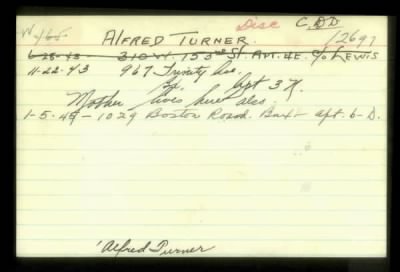 Disc C.D.D
W-165 ALFRED TURNER. 12697
6-25-43 - 310 W. 153rd St. Apt. 4E. c/o LEWIS
11-22-43 967 Trinity Ave.
Bx. Apt 3 K.
Mother lives here also.
1-5-45 - 1029 Boston Road. Bx - apt. 6-D.
Alfred Turner